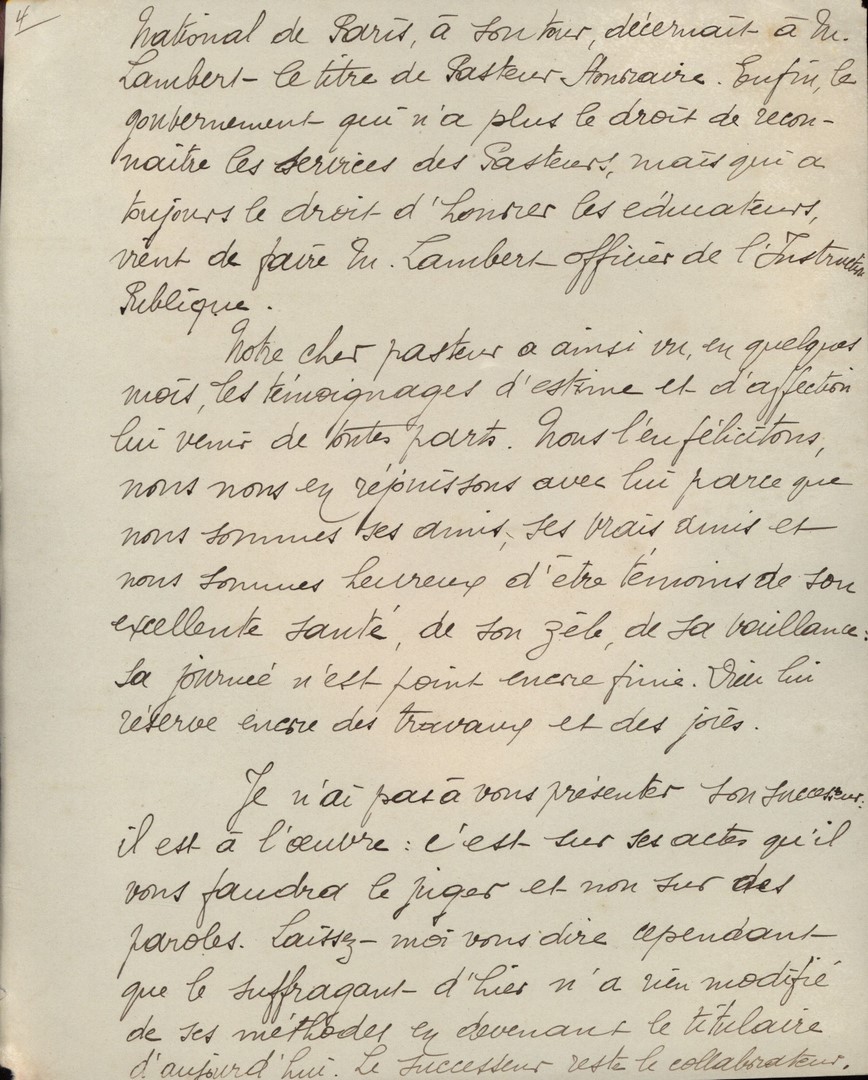 4
National de Paris, à son tour, décernait à M.
Lambert le titre de Pasteur Honoraire. Enfin, le
gouvernement qui n'a plus le droit de recon-
naître les services des Pasteurs, mais qui a
toujours le droit d'honorer les éducateurs,
vient de faire M. Lambert officier de l'Instruction
Publique.
Notre cher pasteur a ainsi vu, en quelques
mois, les témoignages d'estime et d'affection
lui venir de toutes parts. Nous l'en félicitons,
nous nous en réjouissons avec lui parce que
nous sommes ses amis, ses vrais amis et
nous sommes heureux d'être témoins de son
excellente santé, de son zèle, de sa vaillance :
sa journée n'est point encore finie. Dieu lui
réserve encore des travaux et des joies.
Je n'ai pas à vous présenter son successeur.
il est à l'œuvre : c'est sur ses actes qu'il
vous faudra le juger et non sur des
paroles. Laissez-moi vous dire cependant
que le suffragant d'hier n'a rien modifié
de ses méthodes en devenant le titulaire
d'aujourd'hui. Le successeur reste le collaborateur.